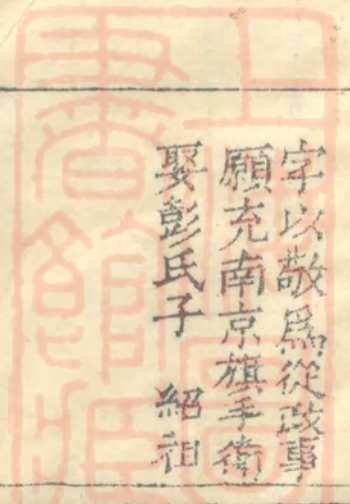 字以敬爲從政事
願充南京旗手衛
娶彭氏子　紹祖